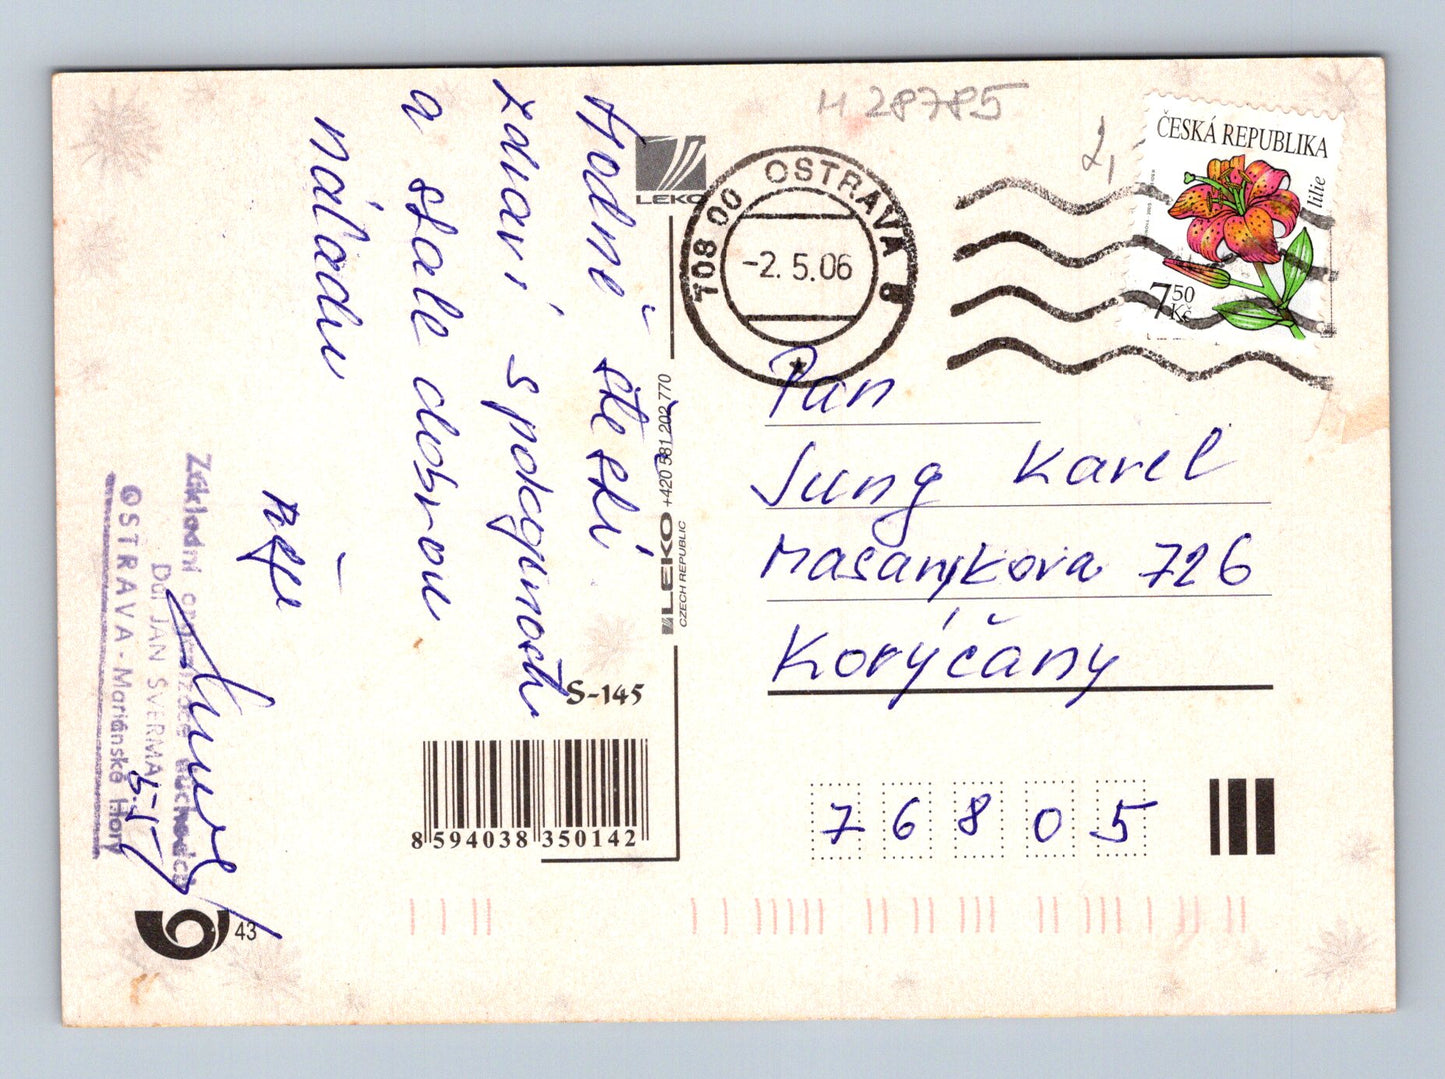 Hodně štěstí
zdraví, spokojenosti
a stále dobrou
náladu
přeje
Základní organizace důchodců
Důl JAN ŠVERMA
OSTRAVA - Mariánské Hory
43
LEKO
LEKO +420 581 202 770
CZECH REPUBLIC
S-145
8 594038 350142
H 28785
2,
708 00 OSTRAVA 8
-2. 5. 06
ČESKÁ REPUBLIKA
lilie
7 50 Kč
Pan
Jung Karel
Masarykova 726
Korýčany
76805